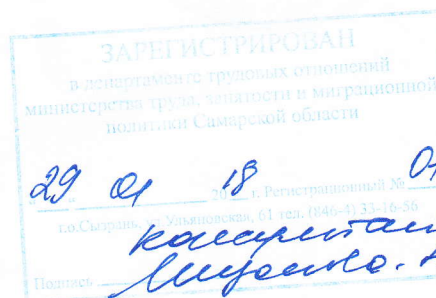 ЗАРЕГИСТРИРОВАН
в департаменте трудовых отношений
министерства труда, занятости и миграционной
политики Самарской области
"29" 01 2018 г. Регистрационный №
г.о.Сызрань, ул.Ульяновская, 61 тел. (846-4) 33-16-56
Подпись